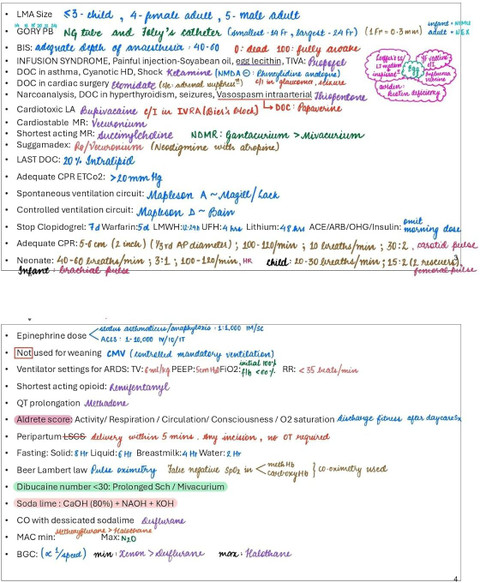 LMA Size ≤3 - child, 4 - female adult, 5 - male adult
GORY PB NG tube and Foley's catheter (smallest - 14 Fr, largest - 24 Fr) (1Fr = 0.3mm)
BIS: adequate depth of anaesthesia: 40-60 0: dead 100: fully awake
INFUSION SYNDROME, Painful injection-Soyabean oil, egg lecithin, TIVA: Propofol
DOC in asthma, Cyanotic HD, Shock Ketamine (NMDA ⊖: Phencyclidine analogue)
DOC in cardiac surgery Etomidate
Narcoanalysis, DOC in hyperthyroidism, seizures, Vasospasm intraarterial Thiopentone
↳ DOC: Papaverine
Cardiotoxic LA Bupivacaine c/I in IVRA (Bier's block)
Cardiostable MR: Vecuronium
Shortest acting MR: Succinylcholine NDMR: Gantacurium > Mivacurium
Suggamadex: Ro/Vecuronium (Neostigmine with atropine)
LAST DOC: 20% Intralipid
Adequate CPR ETCo2: >20mmHg
Spontaneous ventilation circuit: Mapleson A ~ Magill/Lack
Controlled ventilation circuit: Mapleson D ~ Bain
Stop Clopidogrel: 7d Warfarin: 5d LMWH: 12-24h UFH: 4hrs Lithium: 48hrs ACE/ARB/OHG/Insulin: omit morning dose
Adequate CPR: 5-6 cm (2 inch) (1/3rd AP diameter); 100-120/min; 10 breaths/min; 30:2, carotid pulse
Neonate: 40-60 breaths/min; 3:1; 100-120/min, HR child: 20-30 breaths/min; 15:2 (2 rescuers),
Infant: brachial pulse femoral pulse
Epinephrine dose status asthmaticus/anaphylaxis - 1:1,000 IM/SC
ACLS: 1-10,000 IV/IO/IT
Not used for weaning CMV (controlled mandatory ventilation)
Ventilator settings for ARDS: TV: 6ml/kg PEEP: 5cmH₂O FiO2: initial 100% f/b <60% RR: <35 beats/min
Shortest acting opioid: Remifentanyl
QT prolongation Methadone
Aldrete score: Activity/ Respiration / Circulation/ Consciousness / O2 saturation discharge fitness after daycare Sx
Peripartum LSCS delivery within 5 mins. Any incision, no OT required
Fasting: Solid: 8Hr Liquid: 6Hr Breastmilk: 4Hr Water: 2Hr
Beer Lambert law Pulse oximetry False negative SpO2 in metHb carboxyHb } co-oximetry used
Dibucaine number <30: Prolonged Sch / Mivacurium
Soda lime : CaOH (80%) + NAOH + KOH
CO with dessicated sodalime Desflurane
MAC min: Methoxyflurane > Halothane Max: N₂O
BGC: (∝ 1/speed) min: Xenon > Desflurane max: Halothane
4